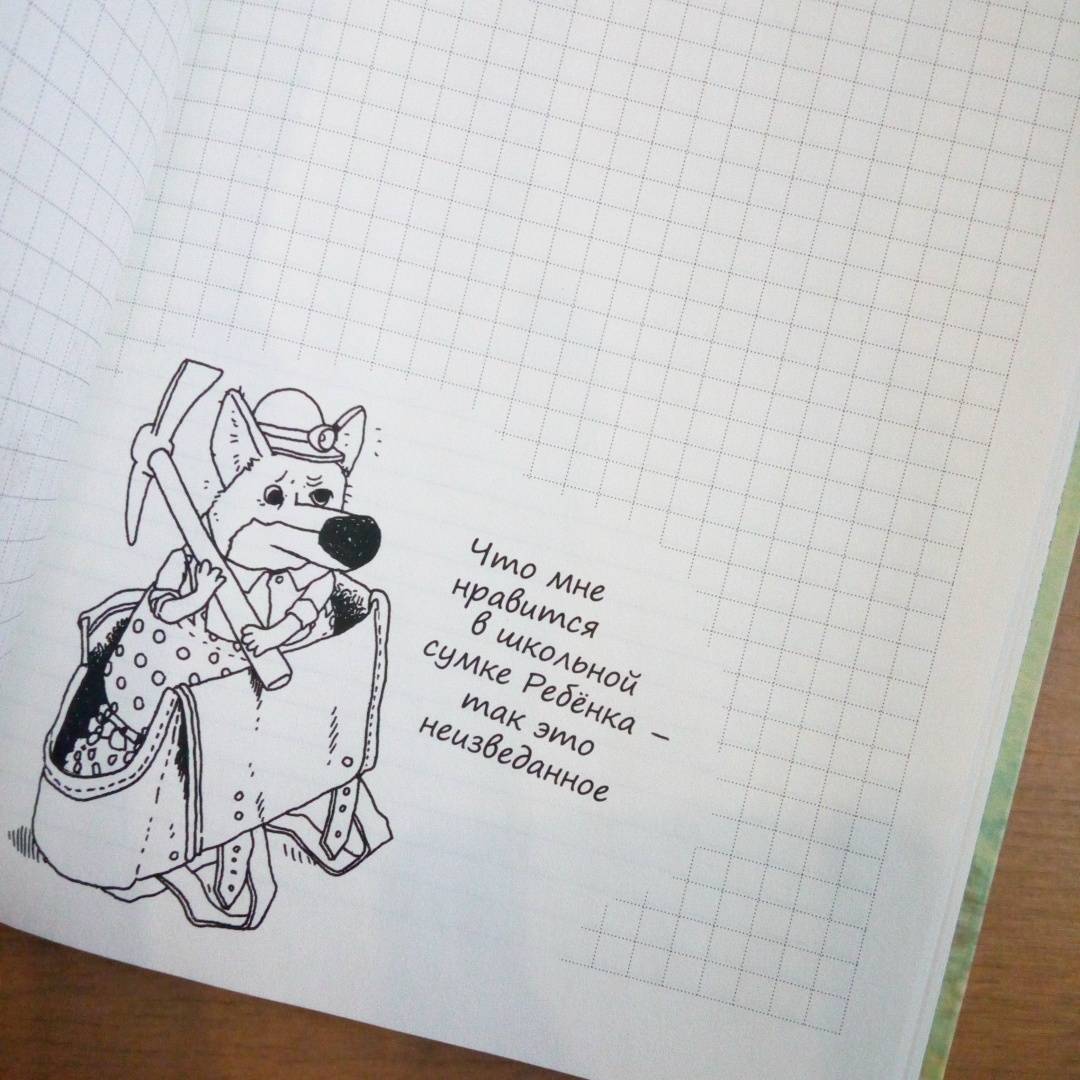 Что мне
нравится
в школьной
сумке Ребёнка –
так это
неизведанное